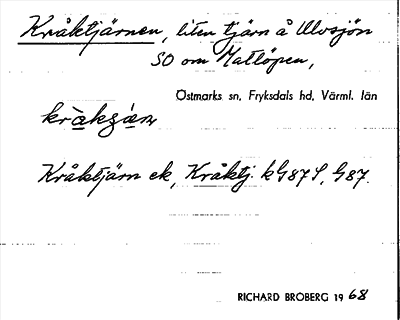 Kråktjärnen, liten tjärn å Ulvsjön
SO om Matlöpen,
Östmarks sn, Fryksdals hd, Värml. län
Kråktjärn ek, Kråktj. kG87S, G87.
RICHARD BROBERG 1968